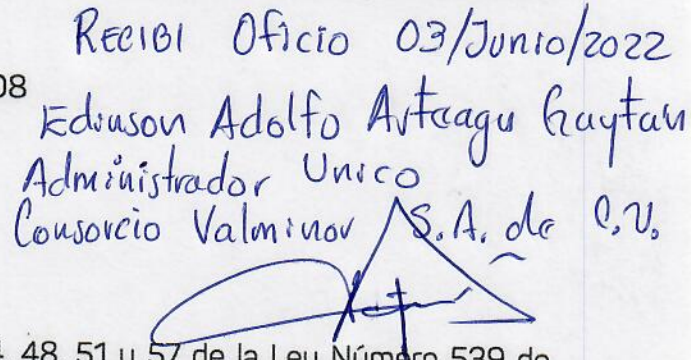 RECIBI Oficio 03/Junio/2022
08
Edinson Adolfo Arteaga Gaytan
Administrador Unico
Consorcio Valminov S.A. de C.V.
48, 51 y 57 de la Ley Número 539 de